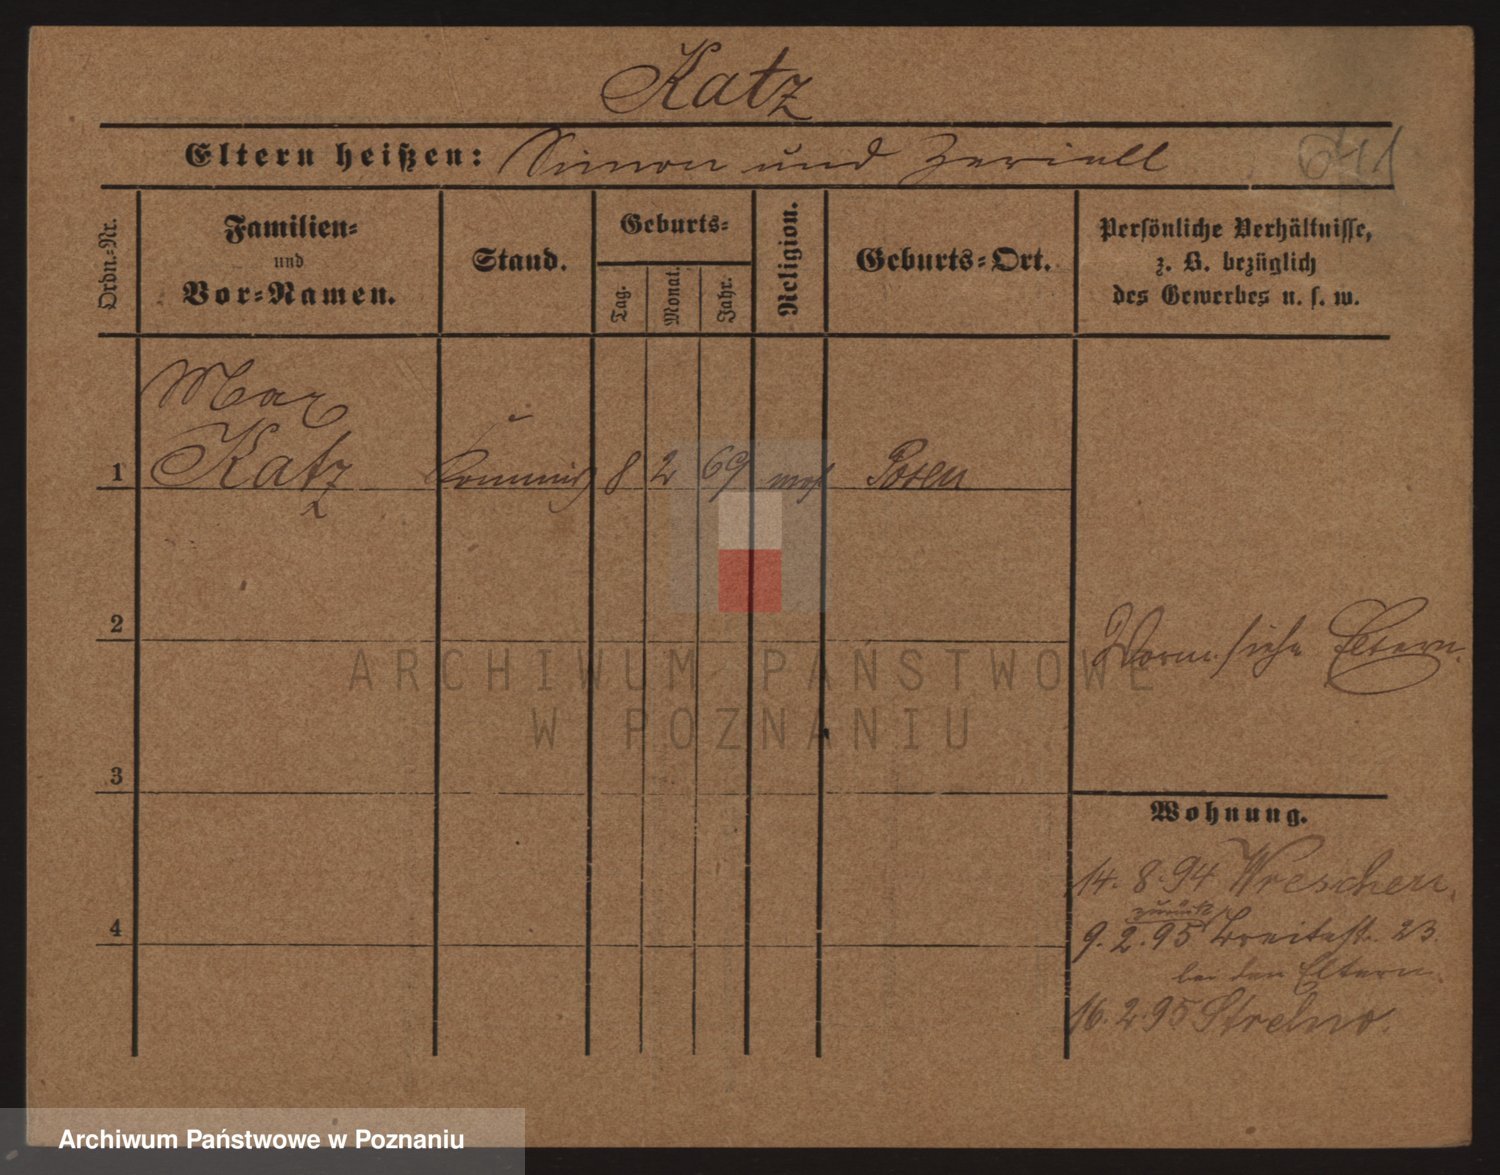 Katz
Eltern heißen: Simon und Zeriell
641
Ordn.-Nr.
Familien-
und
Vor-Namen.
Stand.
Geburts-
Tag.
Monat.
Jahr.
Religion.
Geburts-Ort.
Persönliche Verhältnisse,
z. B. bezüglich
des Gewerbes u. s. w.
Max
1 Katz Kommis 8 2 69 mos Posen
2
Vorm. siehe Eltern.
3
Wohnung.
14. 8. 94 Wreschen.
zurück
9. 2. 95 Breitestr. 23.
bei den Eltern.
4
16. 2. 95 Strelno.
ARCHIWUM PAŃSTWOWE
W POZNANIU
Archiwum Państwowe w Poznaniu